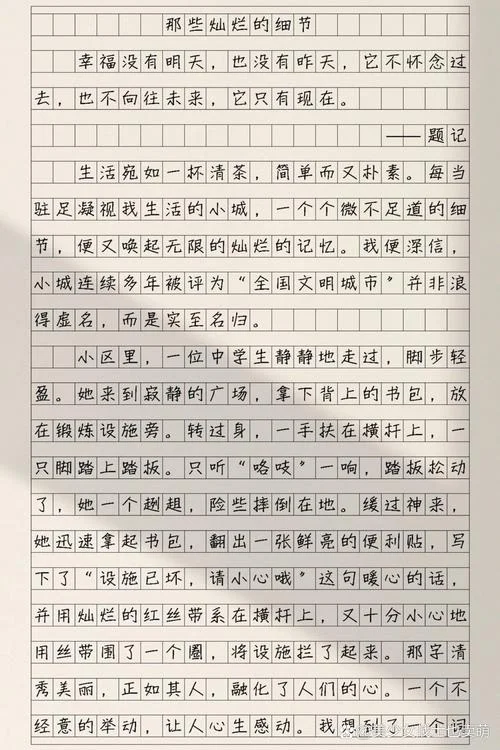 那些灿烂的细节
幸福没有明天，也没有昨天，它不怀念过
去，也不向往未来，它只有现在。
——题记
生活宛如一杯清茶，简单而又朴素。每当
驻足凝视我生活的小城，一个个微不足道的细
节，便又唤起无限的灿烂的记忆。我便深信，
小城连续多年被评为“全国文明城市”并非浪
得虚名，而是实至名归。
小区里，一位中学生静静地走过，脚步轻
盈。她来到寂静的广场，拿下背上的书包，放
在锻炼设施旁。转过身，一手扶在横杆上，一
只脚踏上踏板。只听“咯吱”一响，踏板松动
了，她一个趔趄，险些摔倒在地。缓过神来，
她迅速拿起书包，翻出一张鲜亮的便利贴，写
下了“设施已坏，请小心哦”这句暖心的话，
并用灿烂的红丝带系在横杆上，又十分小心地
用丝带围了一个圈，将设施拦了起来。那字清
秀美丽，正如其人，融化了人们的心。一个不
经意的举动，让人心生感动。我想到了一个词